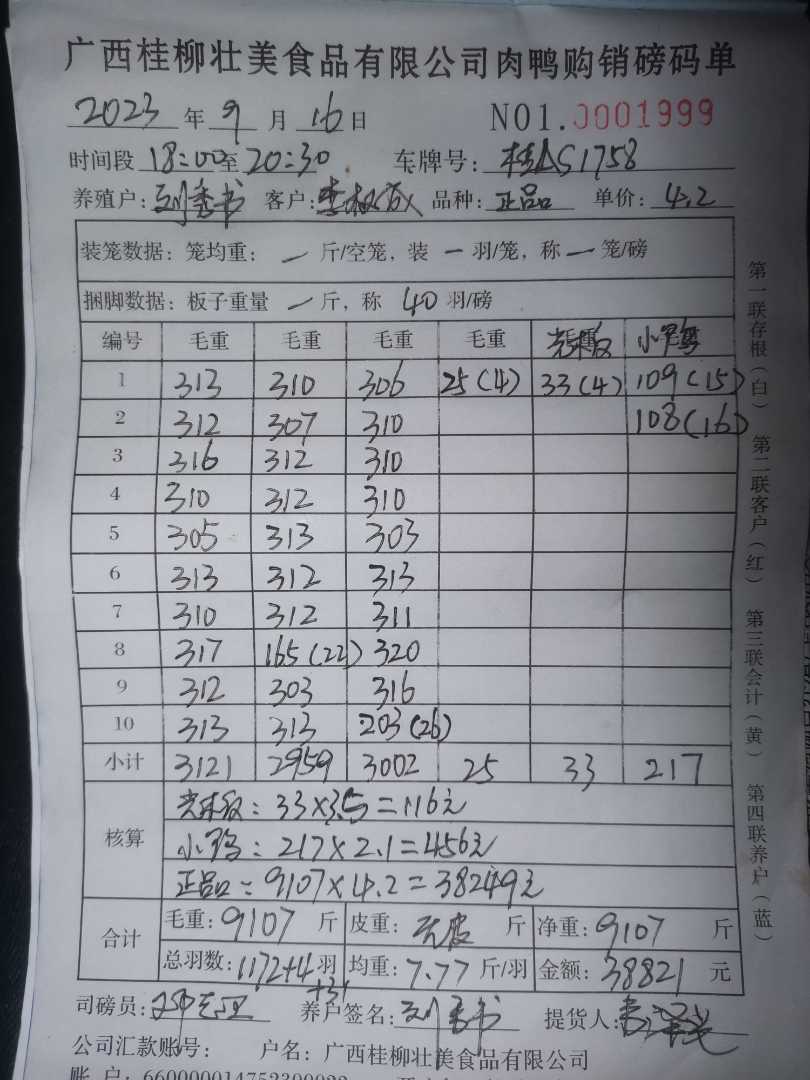 广西桂柳壮美食品有限公司肉鸭购销磅码单
2023 年 9 月 16 日 NO1.0001999
时间段 18:00至 20:30 车牌号: 桂AS1758
养殖户: 刘秀书 客户: 品种: 正品 单价: 4.2
装笼数据: 笼均重: 一 斤/空笼, 装 一 羽/笼, 称 一 笼/磅
捆脚数据: 板子重量 一 斤, 称 40 羽/磅
编号 毛重 毛重 毛重 毛重 小鸭
1 313 310 306 25(4) 33(4) 109(15)
2 312 307 310 108(16)
3 316 312 310
4 310 312 310
5 305 313 303
6 313 312 313
7 310 312 311
8 317 165(22) 320
9 312 303 316
10 313 313 203(26)
小计 3121 2959 3002 25 33 217
核算
: 33×3.5=116元
小鸭: 217×2.1=456元
正品: 9107×4.2=38249元
合计
毛重: 9107 斤 皮重: 无皮 斤 净重: 9107 斤
总羽数: 1172+4 羽 均重: 7.77 斤/羽 金额: 38821 元
+31
司磅员: 养户签名: 刘秀书 提货人:
公司汇款账号: 户名: 广西桂柳壮美食品有限公司
账 户: 660000014752300022
第一联存根(白) 第二联客户(红) 第三联会计(黄) 第四联养户(蓝)